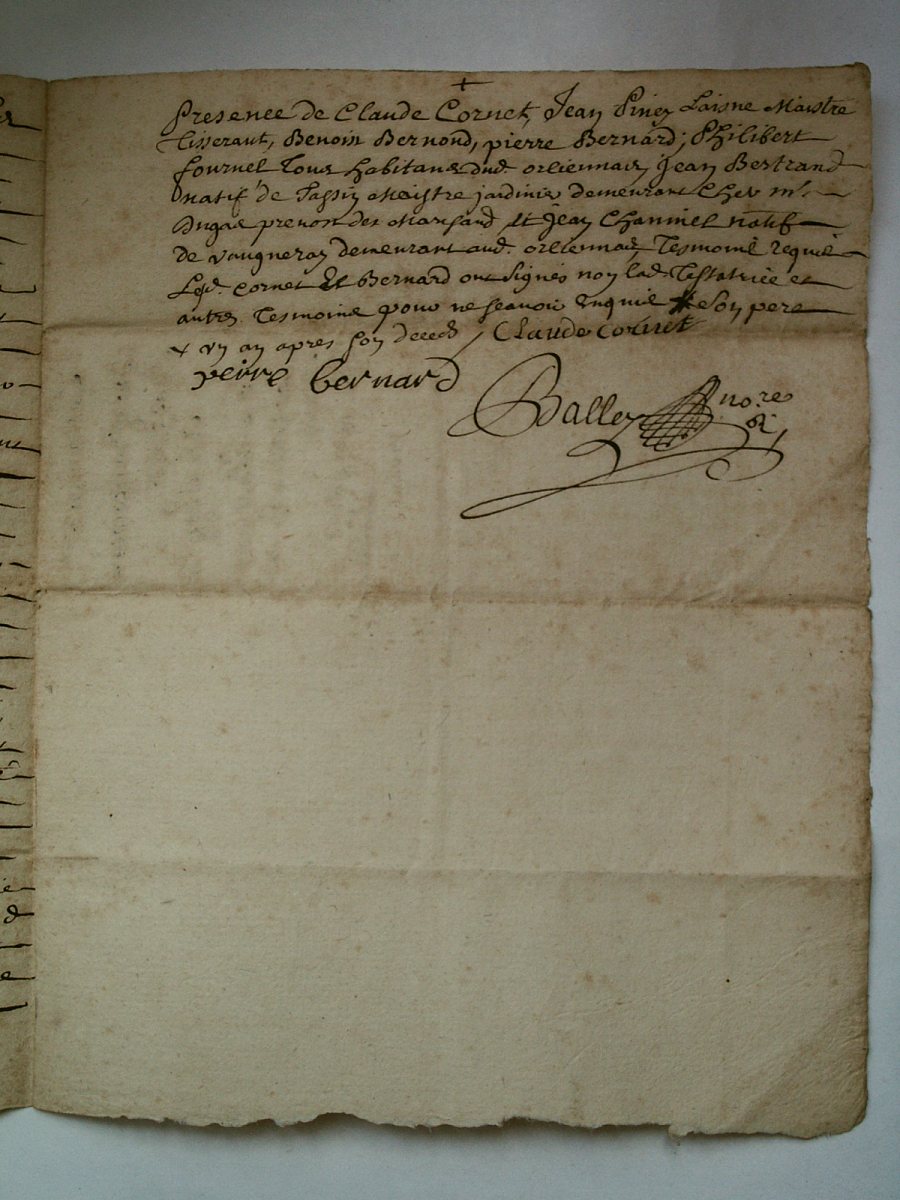 +
Presence de Claude Cornet, Jean Piney Laisne Maistre
Tisseraut, Benoist Bernond, pierre Bernard; Philibert
fournel Tous habitans dud. orliennais Jean Bertrand
natif de Tassin Maistre jardinier demeurant Chez mr.
Dugas prevost des Marchand et Jean Chaminel natif
de vaugneray demeurant aud. orliennais, Tesmoins requis
Lesd. Cornet Et Bernard ont signés non lad. Testatrice et
autres Tesmoins pour ne scavoir Enquis de son pere
+ un an apres son deceds / Claude Cornet
peirre bernard
Balley nore